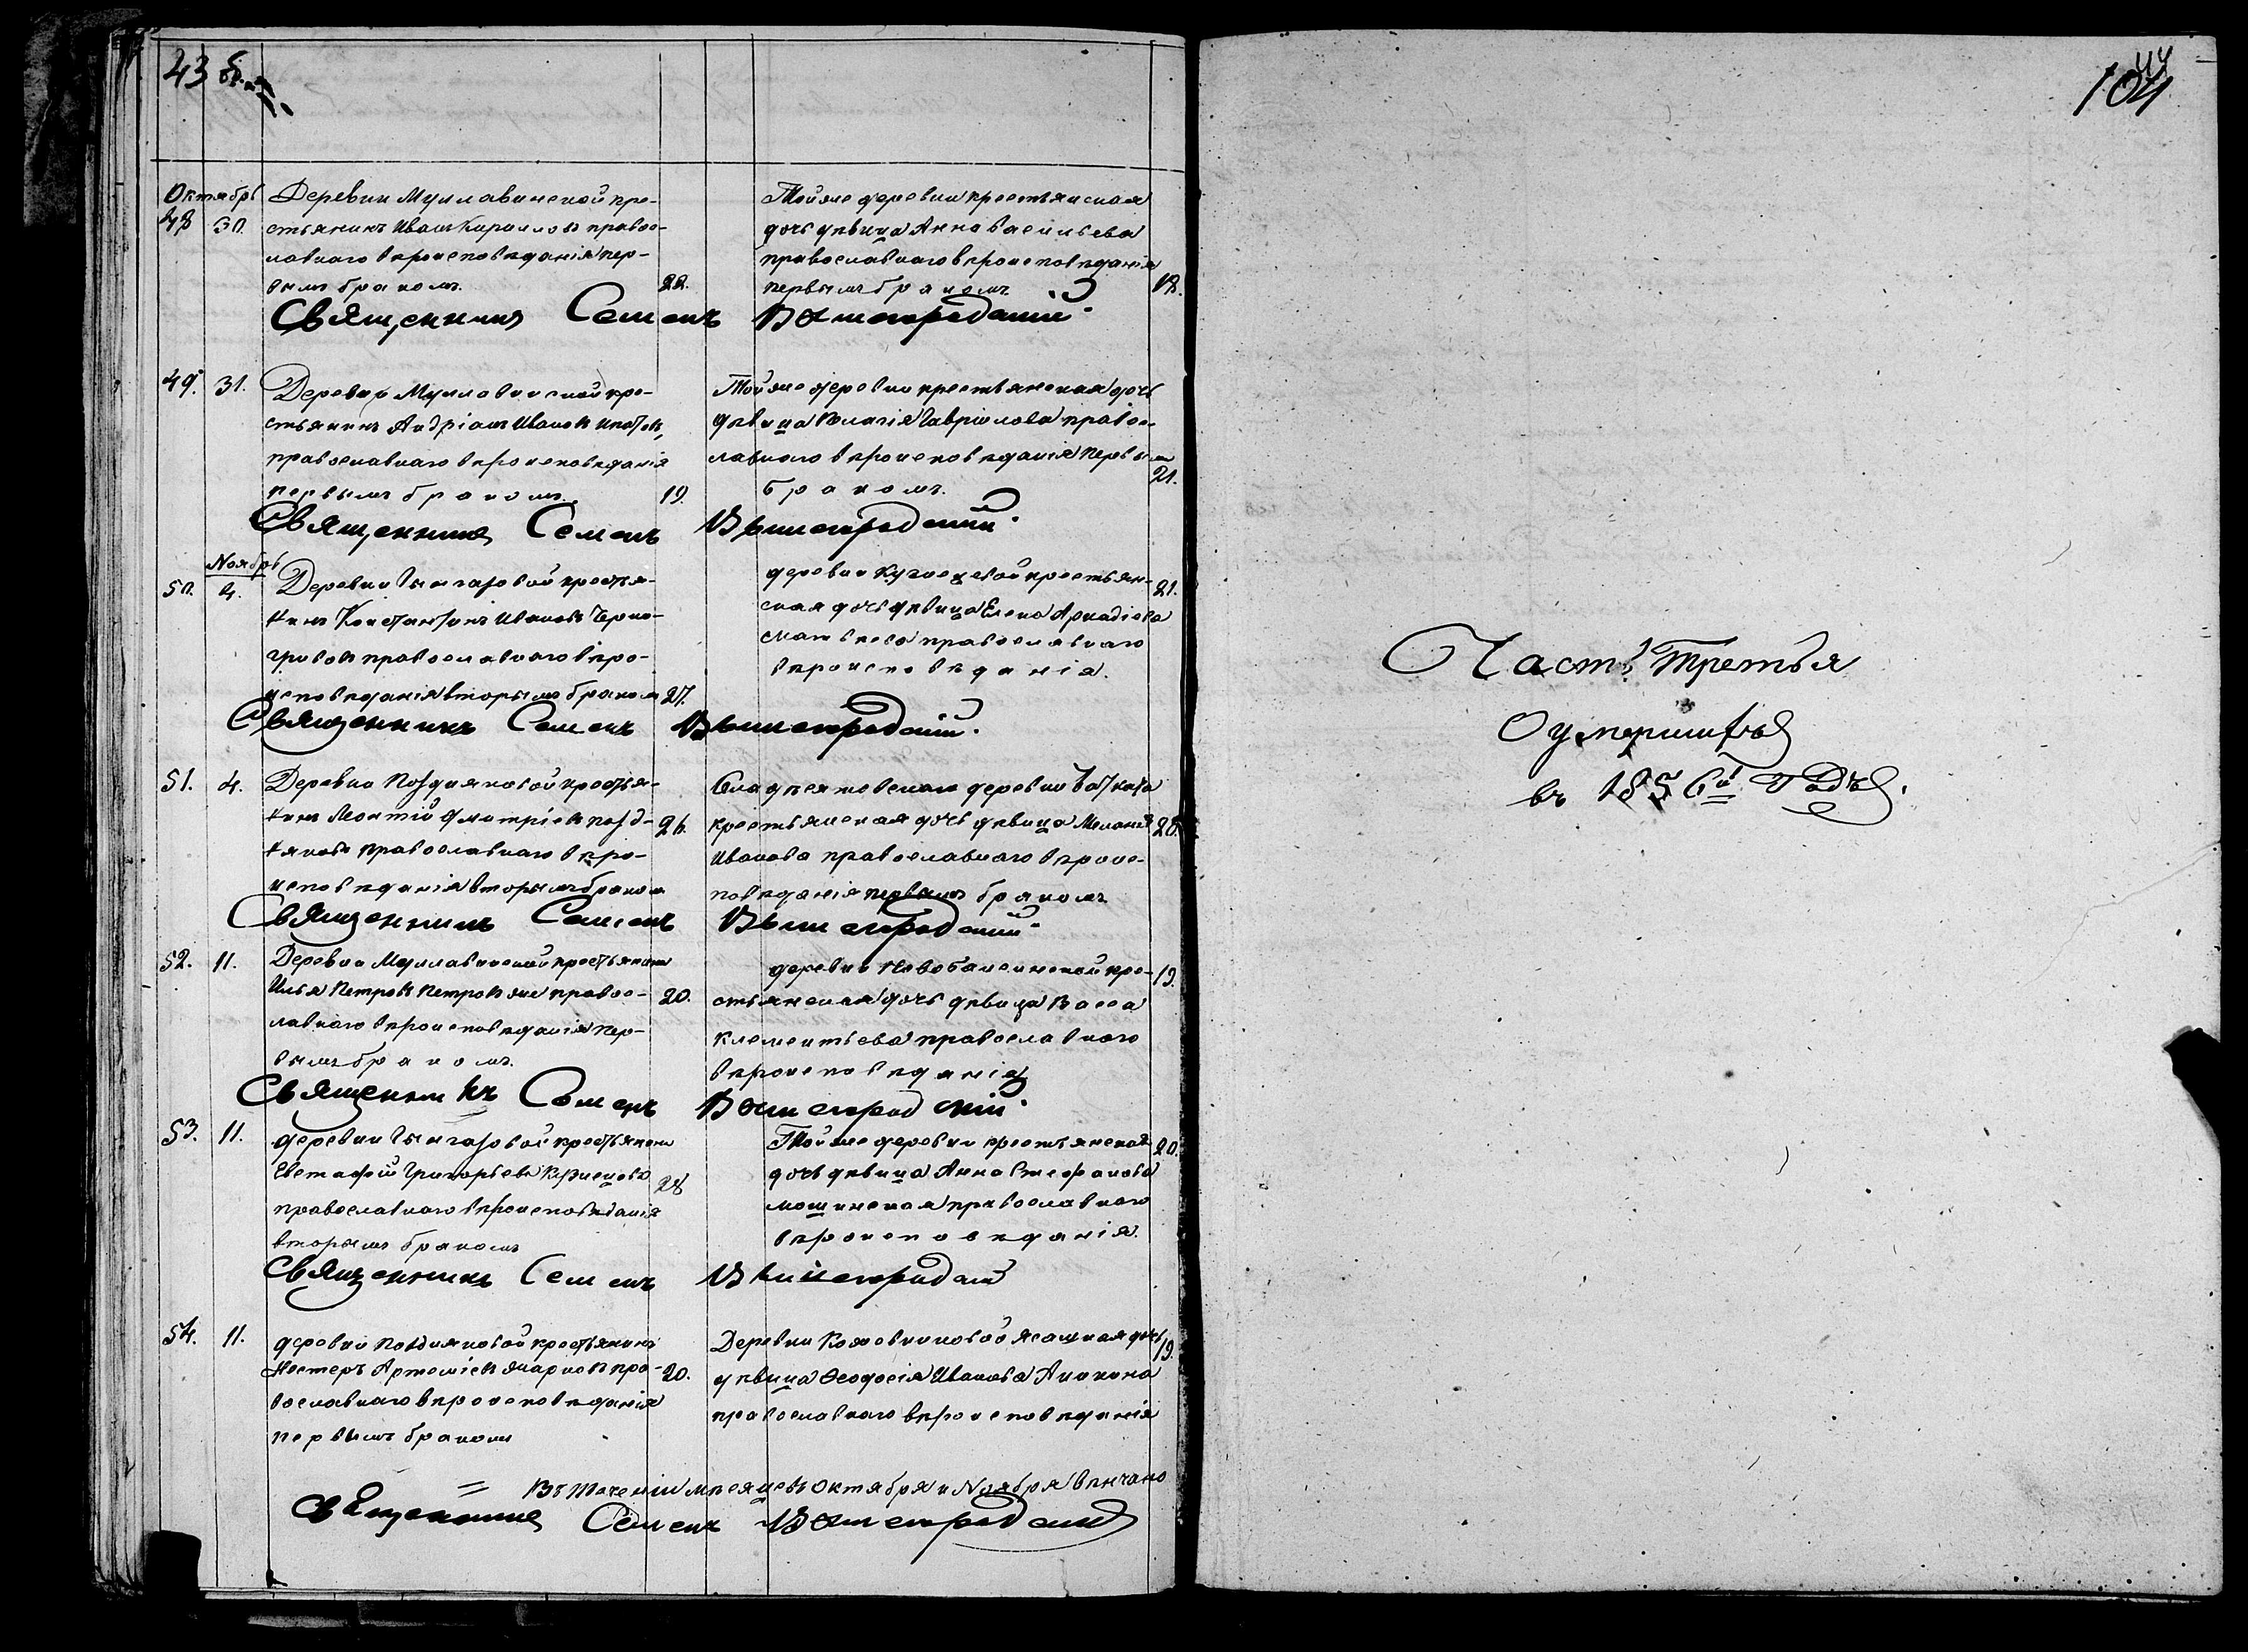 43 об.
Октябрь
48 30. Деревни Муллавинской кре-
стьянинъ Иванъ Кирилловъ правос-
лавнаго вѣроисповѣданія пер-
вымъ бракомъ. 22.
Тойже деревни крестьянская
дочь дѣвица Анна Васильева
православнаго вѣроисповѣданія
первымъ бракомъ 18.
Священникъ Семенъ Вышегородскій.
49. 31. Деревни Муллавинской кре-
стьянинъ Андріанъ Ивановъ
православнаго вѣроисповѣданія
первымъ бракомъ. 19.
Тойже деревни крестьянская дочь
дѣвица Пелагія Гавріилова правос-
лавнаго вѣроисповѣданія первымъ
бракомъ. 21.
Священникъ Семенъ Вышегородскій.
Ноябрь
50. 4. Деревни крестья-
нинъ Константинъ Ивановъ Черно-
гривовъ православнаго вѣро-
исповѣданія вторымъ бракомъ 27.
деревни крестьян-
ская дочь дѣвица Елена Аркадіева 21.
православнаго
вѣроисповѣданія.
Священникъ Семенъ Вышегородскій.
51. 4. Деревни Поздняковой крестья-
нинъ Леонтій Дмитріевъ Позд-
няковъ православнаго вѣро-
исповѣданія вторымъ бракомъ 26.
Села деревни
крестьянская дочь дѣвица Меланія
Иванова православнаго вѣроис-
повѣданія первымъ бракомъ
Священникъ Семенъ Вышегородскій.
52. 11. Деревни Муллавинской крестьянинъ
Илья Петровъ Петровъ же правос-
лавнаго вѣроисповѣданія пер-
вымъ бракомъ. 20.
деревни кре-
стьянская дочь дѣвица Васса 19.
Клементьева православнаго
вѣроисповѣданія
Священникъ Семенъ Вышегородскій.
53. 11. деревни крестьянинъ
Евстафій Григорьевъ Кузнецовъ
православнаго вѣроисповѣданія
вторымъ бракомъ 28
Тойже деревни крестьянская
дочь дѣвица Анна Стефанова 20.
православнаго
вѣроисповѣданія.
Священникъ Семенъ Вышегородскій
54. 11. деревни Поздняковой крестьянинъ
Нестеръ Артеміевъ пра-
вославнаго вѣроисповѣданія
первымъ бракомъ 20.
Деревни Кожевниковой ясашная дочь
дѣвица Ѳеодосія Иванова Аникина 19.
православнаго вѣроисповѣданія
Въ теченіи мѣсяцевъ Октября и Ноября вѣнчано
Священникъ Семенъ Вышегородскій
44
104
Часть Третья
О умершихъ
въ 1856й Годъ.